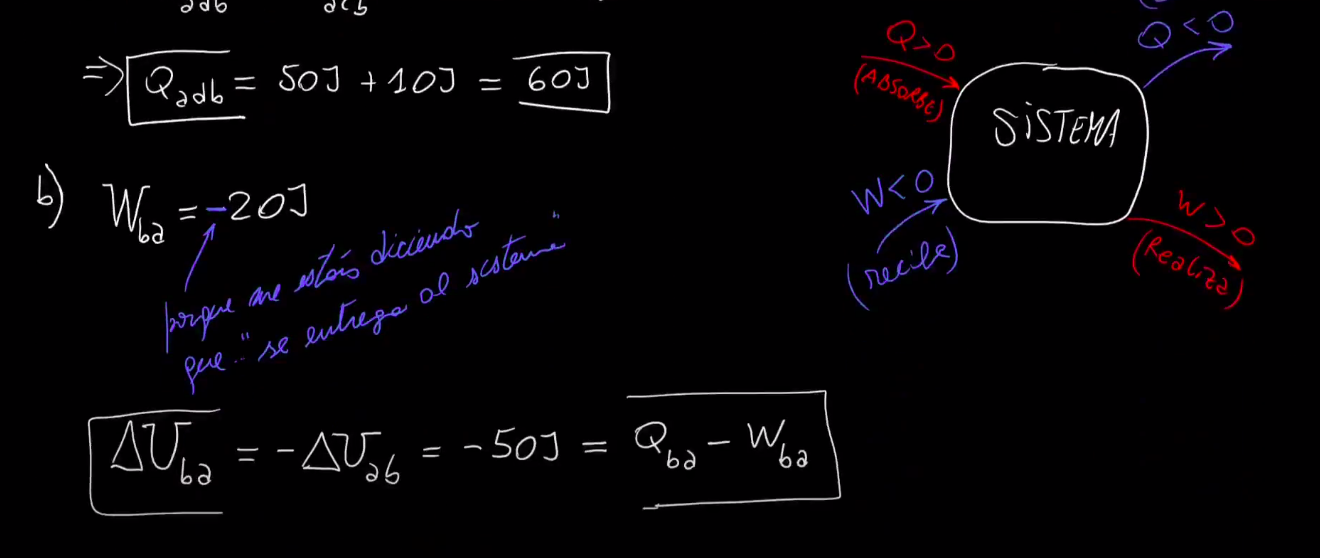 adb acb
=> Q_adb = 50J + 10J = 60J
b) W_ba = -20J
porque me estás diciendo
que.. "se entrega al sistema"
ΔU_ba = -ΔU_ab = -50J = Q_ba - W_ba
Q>0
(ABSORBE)
Q<0
SiSTEMA
W<0
(recibe)
W>0
(Realiza)